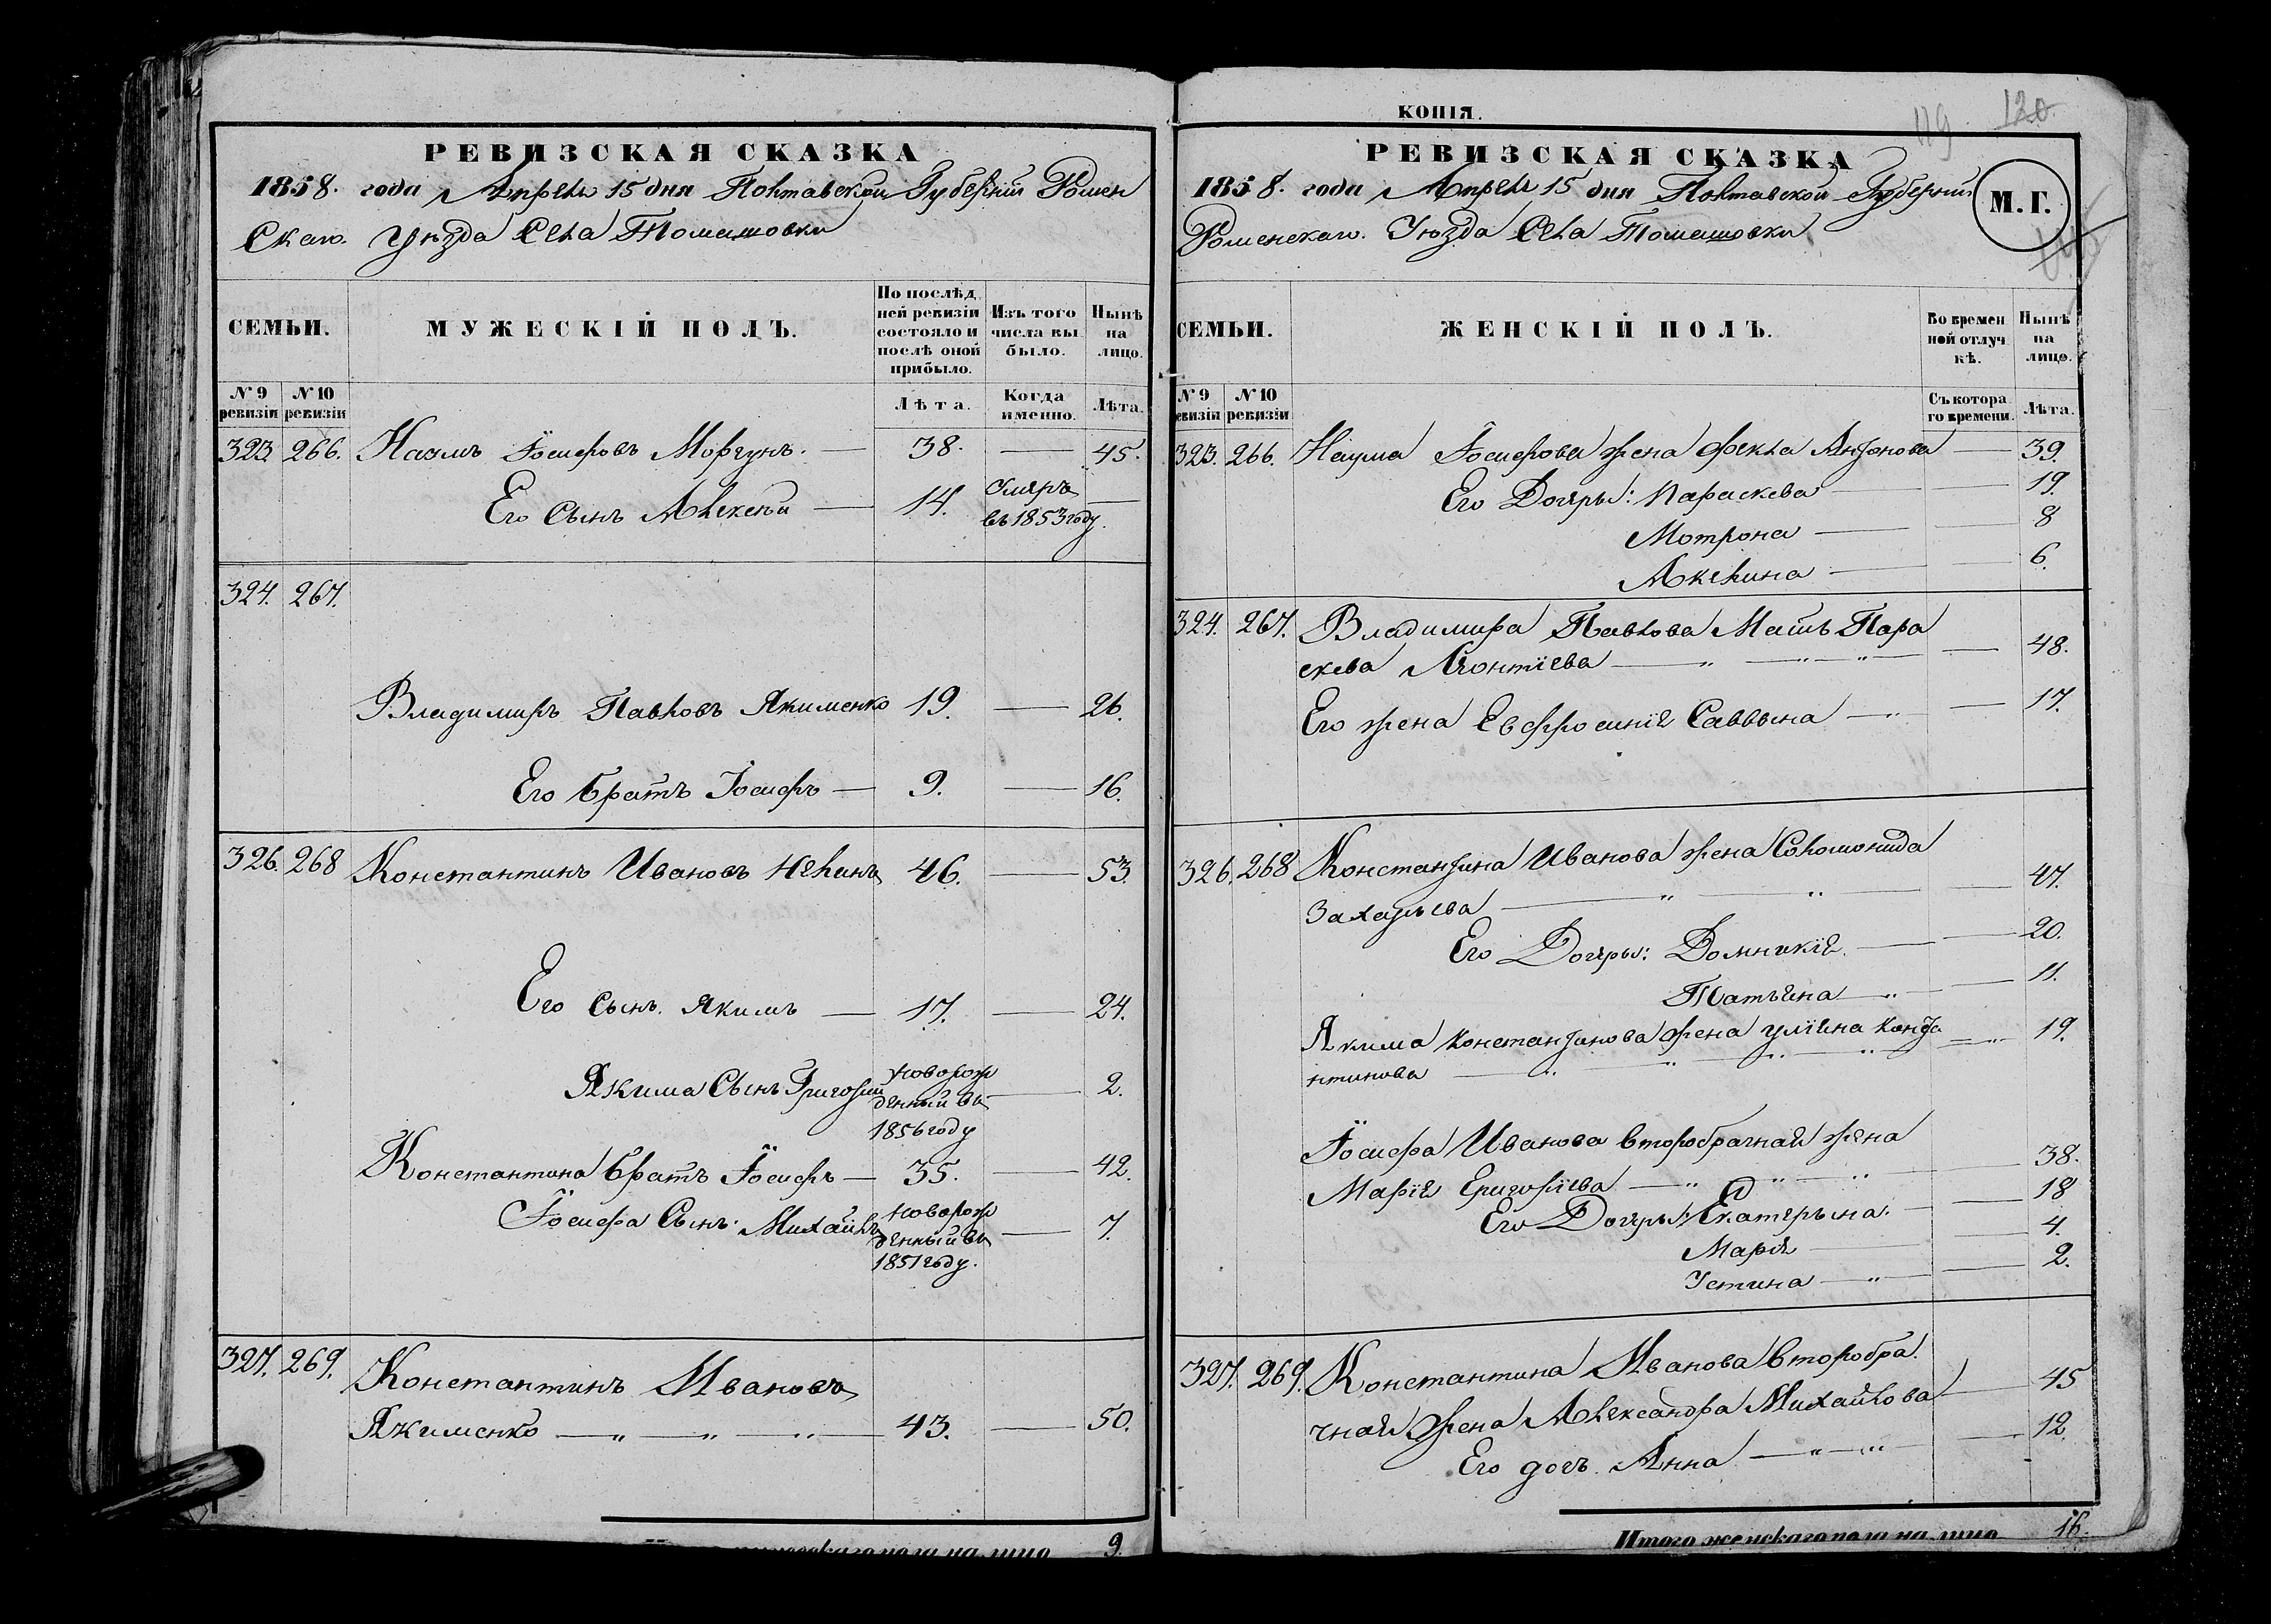 РЕВИЗСКАЯ СКАЗКА
1858. года Апреля 15 дня Полтавской Губерніи Ромен
Скаго. Уѣзда Села Томашовки
СЕМЬИ.
МУЖЕСКІЙ ПОЛЪ.
По послѣд
ней ревизіи
состояло и
послѣ оной
прибыло.
Изъ того
числа вы
было.
Нынѣ
на
лицо.
№ 9 ревизіи
№ 10 ревизіи
Лѣта.
Когда именно.
Лѣта.
323. 266. Наумъ Іосифовъ Моргунъ. — 38. — 45.
Его Сынъ Алексѣй — 14. Умяръ въ 1853 году. —
324. 267.
Владимиръ Павловъ Якименко 19. — 26.
Его братъ Іосифъ — 9. — 16.
326. 268 Константинъ Ивановъ 46. — 53.
Его Сынъ. Якимъ — 17. — 24.
Якима Сынъ Григорій новорож
денный въ — 2.
1856 году
Константина братъ Іосифъ — 35. — 42.
Іосифа Сынъ. Михайлъ новорож
денный въ — 7.
1851 году.
327. 269. Константинъ Ивановъ
Якименко — „ — „ — „ — 43. — 50.
9.
КОПІЯ.
119. 120.
РЕВИЗСКАЯ СКАЗКА
1858. года Апреля 15 дня Полтавской Губерніи
М. Г.
Роменскаго. Уѣзда Села Томашовки
СЕМЬИ.
ЖЕНСКІЙ ПОЛЪ.
Во времен
ной отлуч
кѣ.
Нынѣ
на
лицо.
№ 9 ревизіи
№ 10 ревизіи
Съ котора
го времени.
Лѣта.
323. 266. Наума Іосифова жена Фекла Антонова — 39.
Его Дочяры: Параскева — 19.
Мотрона — 8
Акилина — 6.
324. 267. Владимира Павлова Мать Пара
скева Леонтіева — „ — „ — „ — 48.
Его жена Евфросиніе Саввына — „ — 17.
326. 268 Константина Иванова жена Соломонида
Захарьева — „ — „ — 47.
Его Дочяры: Домникіе. — 20.
Татьяна — „ — 11.
Якима Константинова жена Уліяна Конста
нтинова — „ — „ — „ — „ — 19.
Іосифа Иванова второбрачная жена
Маріе Григоріева — „ — „ — „ — 38.
Его Дочяры: Екатерына. — 18
Маріе — 4.
Устина — „ — 2.
327. 269. Константина Иванова второбра.
чная жена Александра Михайлова — 45
Его дочь. Анна — „ — „ — 12.
Итого женскаго пола на лицо 16.